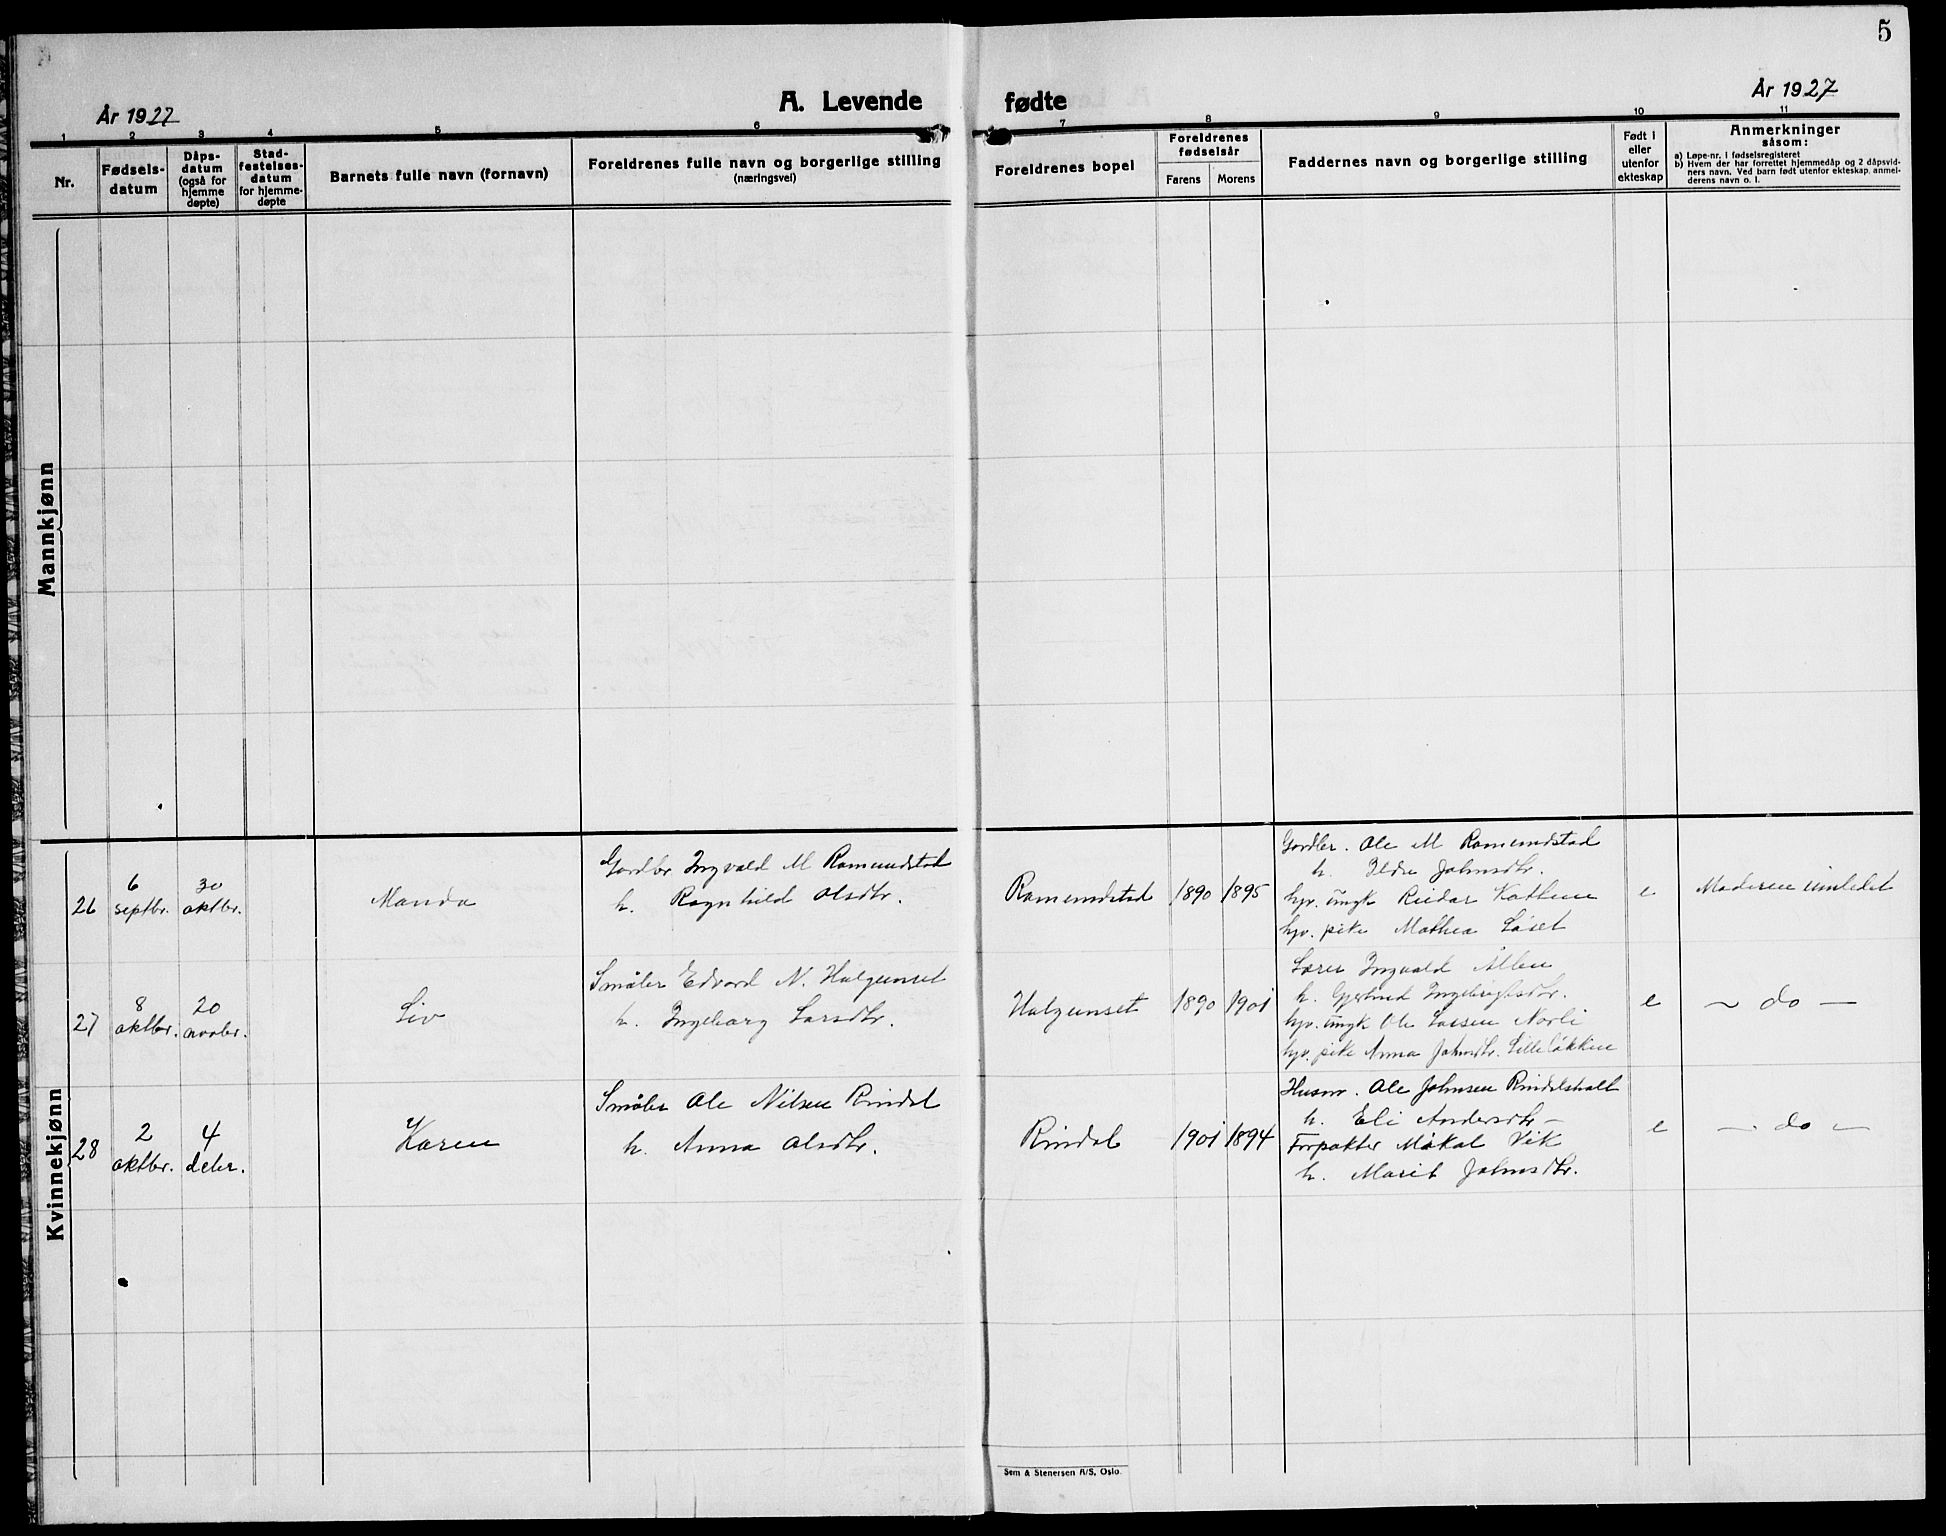 5
År 1927
A. Levende
fødte
År 1927
1 2 3 4 5 6 7 8 9 10 11
Nr.
Fødsels-
datum
Dåps-
datum
(også for
hjemme
døpte)
Stad-
festelses-
datum
for hjemme-
døpte
Barnets fulle navn (fornavn)
Foreldrenes fulle navn og borgerlige stilling
(næringsvei)
Foreldrenes bopel
Foreldrenes
fødselsår
Farens
Morens
Faddernes navn og borgerlige stilling
Født i
eller
utenfor
ekteskap
Anmerkninger
såsom:
a) Løpe-nr. i fødselsregisteret
b) Hvem der har forrettet hjemmedåp og 2 dåpsvid-
ners navn. Ved barn født utenfor ekteskap, anmel-
derens navn o. l.
Mannkjønn
Kvinnekjønn
26
6
septbr.
30
oktbr.
Manda
Gardbr Ingvald M Romundstad
h. Ragnhild Olsdtr.
Romundstad
1890
1895
Gardbr. Ole M Romundstad
h. Ildri Johnsdtr.
hjv. ungk Reidar
hjv. pike Mathea Løset
e
Moderen innledet
27
8
oktbr.
20
novbr.
Liv
Småbr Edvard N. Halgunset
h. Ingeborg Larsdtr.
Halgunset
1890
1901
Lærer Ingvald
h. Gjertrud Ingebrigtsdtr.
hjv. ungk Ole Larsen Norli
hjv. pike Anna Johnsdtr. Lilleløkken
e
~ do —
28
2
oktbr.
4
debr.
Karen
Småbr Ole Nilsen Rindal
h. Anna Olsdtr.
Rindal
1901
1894
Husm. Ole Johnsen Rindalshalt
h. Eli Andersdtr —
Forpakter Mikal Vik
h. Marit Johnsdtr.
e
— do —
Sem & Stenersen A/S, Oslo.